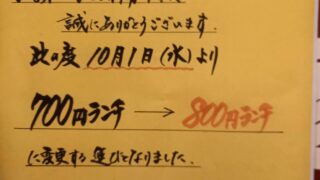 誠にありがとうございます.
此の度 10月1日(水)より
700円ランチ → 800円ランチ
に変更する運びとなりました.